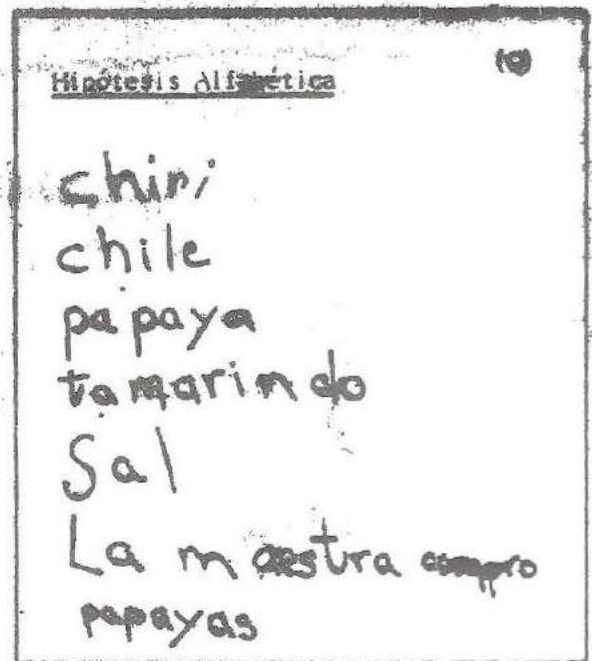 Hipótesis Alfabética
chile
papaya
tamarindo
Sal
La maestra compro
papayas